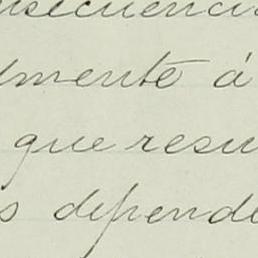 nsecuencia
lmente á
que resu
s depende